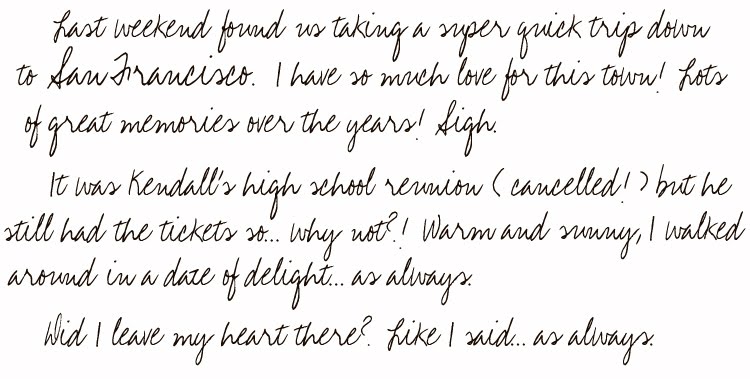 Last weekend found us taking a super quick trip down
to San Francisco. I have so much love for this town! Lots
of great memories over the years! Sigh.
It was Kendall's high school reunion (cancelled!) but he
still had the tickets so... why not?! Warm and sunny, I walked
around in a daze of delight... as always.
Did I leave my heart there? Like I said... as always.